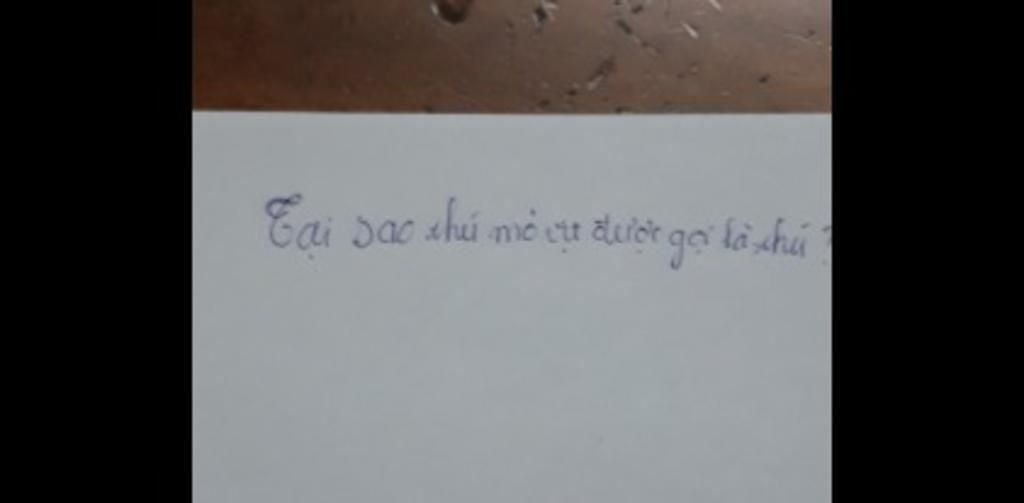 Tại sao thú mỏ vịt được gọi là thú ?